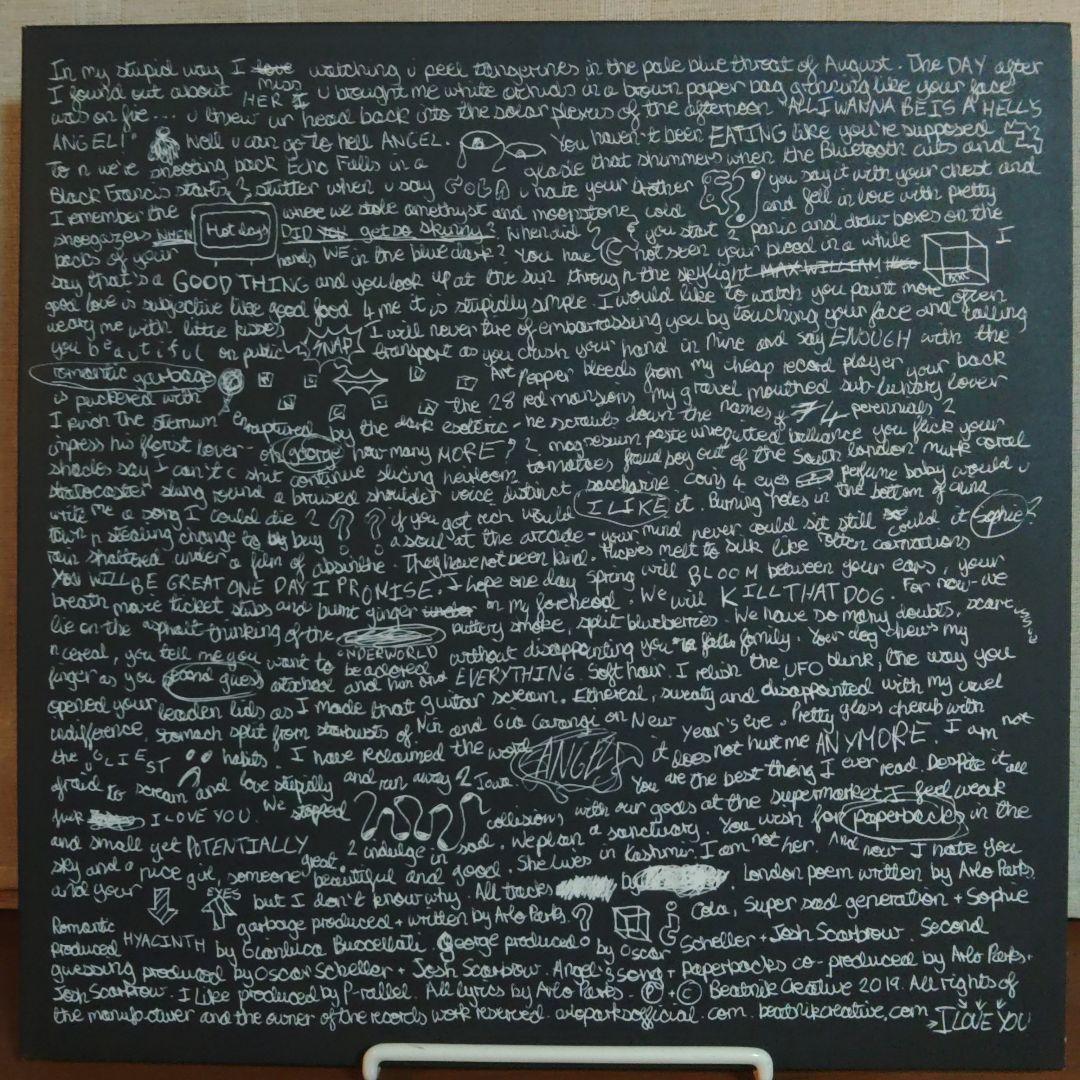 In my stupid way I love watching u peel tangerines in the pale blue throat of August. The DAY after
I found out about HER I miss u brought me white orchids in a brown paper bag grinning like your face
was on fire... u threw ur head back into the solar plexus of the afternoon "ALL I WANNA BE IS A HELL'S
ANGEL!" Well u can go to hell ANGEL. You haven't been EATING like you're supposed
To n we're shooting back Echo Falls in a glade that shimmers when the Bluetooth cuts and
Black Francis starts 2 stutter when u say COLA u hate your brother you say it with your chest and
I remember the Hot days where we stole amethyst and moonstone cold and fell in love with pretty
shoegazers WHEN DID YOU get so skinny? When did you start 2 panic and draw boxes on the
backs of your hands WE in the blue dark? You have not seen your blood in a while I
say that's a GOOD THING and you look up at the sun through the skylight MAX WILLIAM
good love is subjective like good food 4 me it is stupidly simple. I would like to watch you paint more often
weary me with little kisses I will never tire of embarrassing you by touching your face and calling
you beautiful on public SNAP transport as you crush your hand in mine and say ENOUGH with the
romantic garbage Art Pepper bleeds from my cheap record player your back
is puckered with the 28 red mansions my gravel mouthed sub-luxury lover
I pinch the sternum enraptured by the dark esoteric - he scrawls down the names of 74 perennials 2
impress his florist lover - oh george how many MORE? 2 magnesium paste brilliance you fuck your
shades say I can't c shit continue slicing heirloom tomatoes fraud boy out of the South london murk coral
stratocaster slung round a bruised shoulder voice distinct saccharine coins 4 eyes perfume baby would u
write me a song I could die 2 ? ? if you got rich would I LIKE it. Burning holes in the bottom of
town n stealing change to buy a soul at the arcade - your mind never could sit still could it Sophie?
rain shattered under a film of absinthe. They have not been kind. Hippies melt to silk like often carnations
YOU WILL BE GREAT ONE DAY I PROMISE. I hope one day spring will BLOOM between your ears, your
breath movie ticket stubs and burnt ginger under on my forehead. We will KILL THAT DOG. For now - we
lie on the asphalt thinking of the UNDERWORLD puttery smoke, split blueberries. We have so many doubts, scare
n cereal, you tell me you want to be adored without disappointing you family. Your dog chews my
finger as you second guess attached and hun and EVERYTHING. Soft hour. I relish the UFO blink, the way you
opened your leaden lids as I made that guitar scream. Ethereal, sweaty and disappointed with my cruel
indifference. stomach split from starbursts of Nin and Gia Carangi on New Year's eve. Pretty glass cherub with
the UGLIEST habits. I have reclaimed the word ANGEL it does not hurt me ANYMORE. I am not
afraid to scream and love stupidly and run away 2 Iowa You are the best thing I ever read. Despite it all
fuck I LOVE YOU. We stopped collisions with our gods at the supermarket I feel weak
and small yet POTENTIALLY great 2 indulge in sad. We plan a sanctuary. You wish for paperbacks in the
sky and a nice girl, someone beautiful and good. She lives in Kashmir. I am not her. And now I hate you
and your EYES but I don't know why. All tracks by London poem written by Arlo Parks.
Romantic garbage produced + written by Arlo Parks. Cola, Super sad generation + Sophie
produced HYACINTH by Gianluca Buccellati. George produced by Oscar Scheller + Josh Scarbrow. Second
guessing produced by Oscar Scheller + Josh Scarbrow. Angel's song + paperbacks co-produced by Arlo Parks +
Josh Scarbrow. I Like produced by P-rallel. All lyrics by Arlo Parks. Ⓟ + © Beatnik Creative 2019. All rights of
the manufacturer and the owner of the records work reserved. arloparksofficial.com. beatnikcreative.com → I LOVE YOU